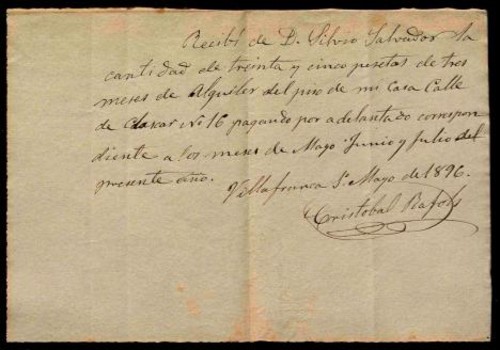 Recibí de D. Silvio Salvador la
cantidad de treinta y cinco pesetas de tres
meses de Alquiler del piso de mi Casa Calle
de Clascar Nº 16 pagando por adelantado correspon
diente a los meses de Mayo Junio y Julio del
presente año.
Villafranca 1º Mayo de 1896.
Cristobal Rafols